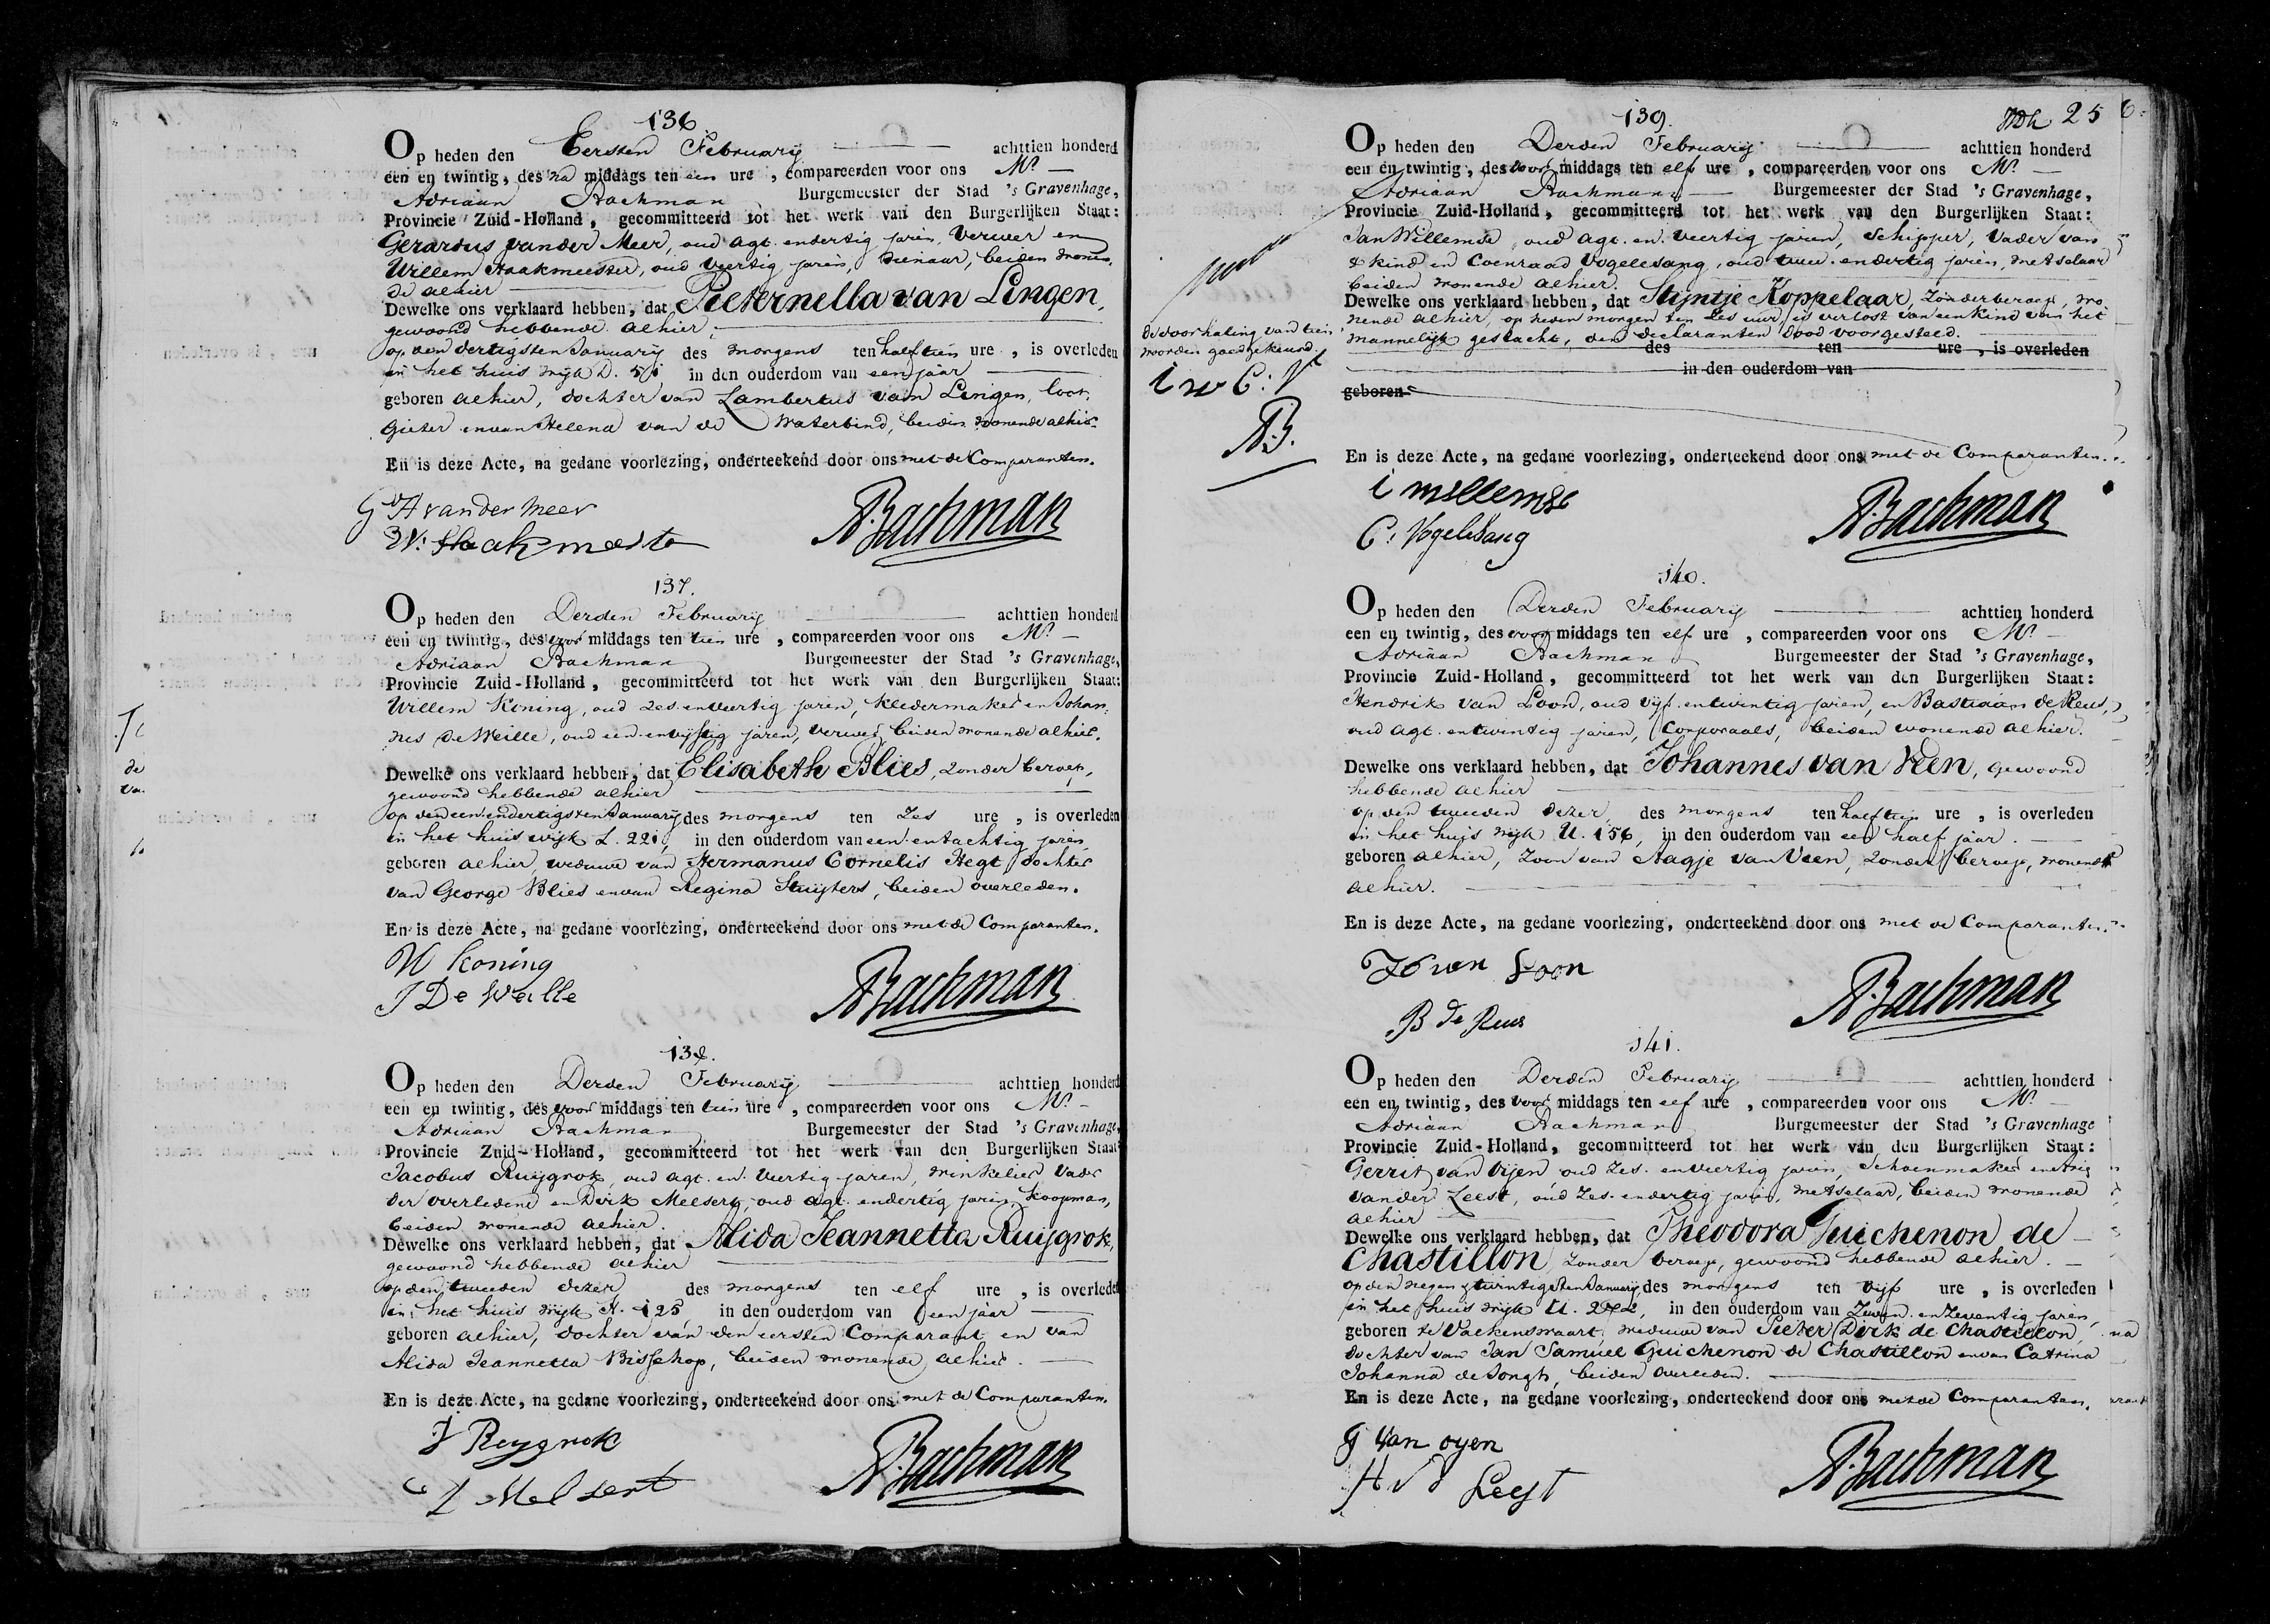 136
Op heden den Eersten Februarij achttien honderd
een en twintig, des na middags ten een ure, compareerden voor ons Mr.
Adriaan Bachman Burgemeester der Stad 's Gravenhage,
Provincie Zuid-Holland, gecommitteerd tot het werk van den Burgerlijken Staat:
Gerardus van der Meer, oud agt. en dertig jaren, Verwer en
Willem Haakmeester, oud veertig jaren, dienaar, beiden wonen,
de alhier
Dewelke ons verklaard hebben, dat Pieternella van Lingen,
gewoond hebbende alhier,
op den dertigsten Januarij des morgens ten half tien ure, is overleden
in het huis wijk D. in den ouderdom van een jaar
geboren alhier, dochter van Lambertus van Lingen, loot,
gieter en van Helena van de Waterbind, beiden wonende alhier
En is deze Acte, na gedane voorlezing, onderteekend door ons met de Comparanten.
van der meer
W: Haakmeester
ABachman
137.
Op heden den Derden Februarij achttien honderd
een en twintig, des voor middags ten tien ure, compareerden voor ons Mr.
Adriaan Bachman Burgemeester der Stad 's Gravenhage,
Provincie Zuid-Holland, gecommitteerd tot het werk van den Burgerlijken Staat:
Willem Koning, oud zes. en veertig jaren, kledermaker en Johan,
nes de Weille, oud een. en vijftig jaren, verwer, beiden wonende alhier.
Dewelke ons verklaard hebben, dat Elisabeth Blies, zonder beroep,
gewoond hebbende alhier
op den een en dertigsten Januarij des morgens ten zes ure, is overleden
in het huis wijk L. 221, in den ouderdom van een. en tachtig jaren,
geboren alhier, weduwe van Hermanus Cornelis Hegt, dochter
van George Blies en van Regina Stuijters, beiden overleden.
En is deze Acte, na gedane voorlezing, onderteekend door ons met de Comparanten.
W Koning
J De Weille
ABachman
138.
Op heden den Derden Februarij achttien honderd
een en twintig, des voor middags ten tien ure, compareerden voor ons Mr.
Adriaan Bachman Burgemeester der Stad 's Gravenhage,
Provincie Zuid-Holland, gecommitteerd tot het werk van den Burgerlijken Staat
Jacobus Ruijgrok, oud agt. en. veertig jaren, winkelier, vader
der overledene en Dirk Melsert, oud agt. en dertig jaren, koopman,
beiden wonende alhier.
Dewelke ons verklaard hebben, dat Alida Jeannetta Ruijgrok,
gewoond hebbende alhier
op den tweeden dezer des morgens ten elf ure, is overleden
in het huis wijk H. 125, in den ouderdom van een jaar
geboren alhier, dochter van den eersten Comparant en van
Alida Jeannetta Bisschop, beiden wonende alhier.
En is deze Acte, na gedane voorlezing, onderteekend door ons met de Comparanten.
J Reygrok
D Melsert
ABachman
25
139.
Op heden den Derden Februarij achttien honderd
een en twintig, des voor middags ten elf ure, compareerden voor ons Mr.
Adriaan Bachman Burgemeester der Stad 's Gravenhage,
Provincie Zuid-Holland, gecommitteerd tot het werk van den Burgerlijken Staat:
Jan Willemse, oud agt. en. veertig jaren, Schipper, Vader van
't kind en Coenraad Vogelesang, oud twee. en dertig jaren, metselaar
beiden wonende alhier.
Dewelke ons verklaard hebben, dat Stijntje Koppelaar, zonder beroep, wo,
nende alhier, op heden morgen ten zes uur, is verlost van een kind van het
mannelijk geslacht, den declaranten dood voorgesteld.
des ten ure, is overleden
in den ouderdom van
geboren
de doorhaling van tien
worden goedgekeurd
i w C: V
AB.
En is deze Acte, na gedane voorlezing, onderteekend door ons met de Comparanten.
i willemse
C: Vogelesang
ABachman
140.
Op heden den Derden Februarij achttien honderd
een en twintig, des voor middags ten elf ure, compareerden voor ons Mr.
Adriaan Bachman Burgemeester der Stad 's Gravenhage,
Provincie Zuid-Holland, gecommitteerd tot het werk van den Burgerlijken Staat:
Hendrik van Loon, oud vijf. en twintig jaren, en Bastiaan de Reus,
oud agt. en twintig jaren, Corporaals, beiden wonende alhier.
Dewelke ons verklaard hebben, dat Johannes van Veen, gewoond
hebbende alhier
op den tweeden dezer, des morgens ten half tien ure, is overleden
in het huis wijk U. 156, in den ouderdom van een half jaar.
geboren alhier, zoon van Aagje van Veen, zonder beroep, wonende
alhier.
En is deze Acte, na gedane voorlezing, onderteekend door ons met de Comparanten.
H van Loon
B de Reus
ABachman
141.
Op heden den Derden Februarij achttien honderd
een en twintig, des voor middags ten elf ure, compareerden voor ons Mr.
Adriaan Bachman Burgemeester der Stad 's Gravenhage
Provincie Zuid-Holland, gecommitteerd tot het werk van den Burgerlijken Staat:
Gerrit van Oijen, oud zes. en veertig jaren, Schoenmaker,
van der Leest, oud zes. en dertig jaren, metselaar, beiden wonende
alhier
Dewelke ons verklaard hebben, dat Theodora Guichenon de
Chastillon, zonder beroep, gewoond hebbende alhier.
op den negen & twintigsten Januarij des morgens ten vijf ure, is overleden
in het huis wijk in den ouderdom van zeven. en zeventig jaren,
geboren te Valkenswaart, weduwe van Pieter Dirk de Chastillon,
dochter van Jan Samuel Guichenon de Chastillon en van Catrina
Johanna de Jongh, beiden overleden.
En is deze Acte, na gedane voorlezing, onderteekend door ons met de Comparanten.
G Van oyen
H V D Leest
ABachman